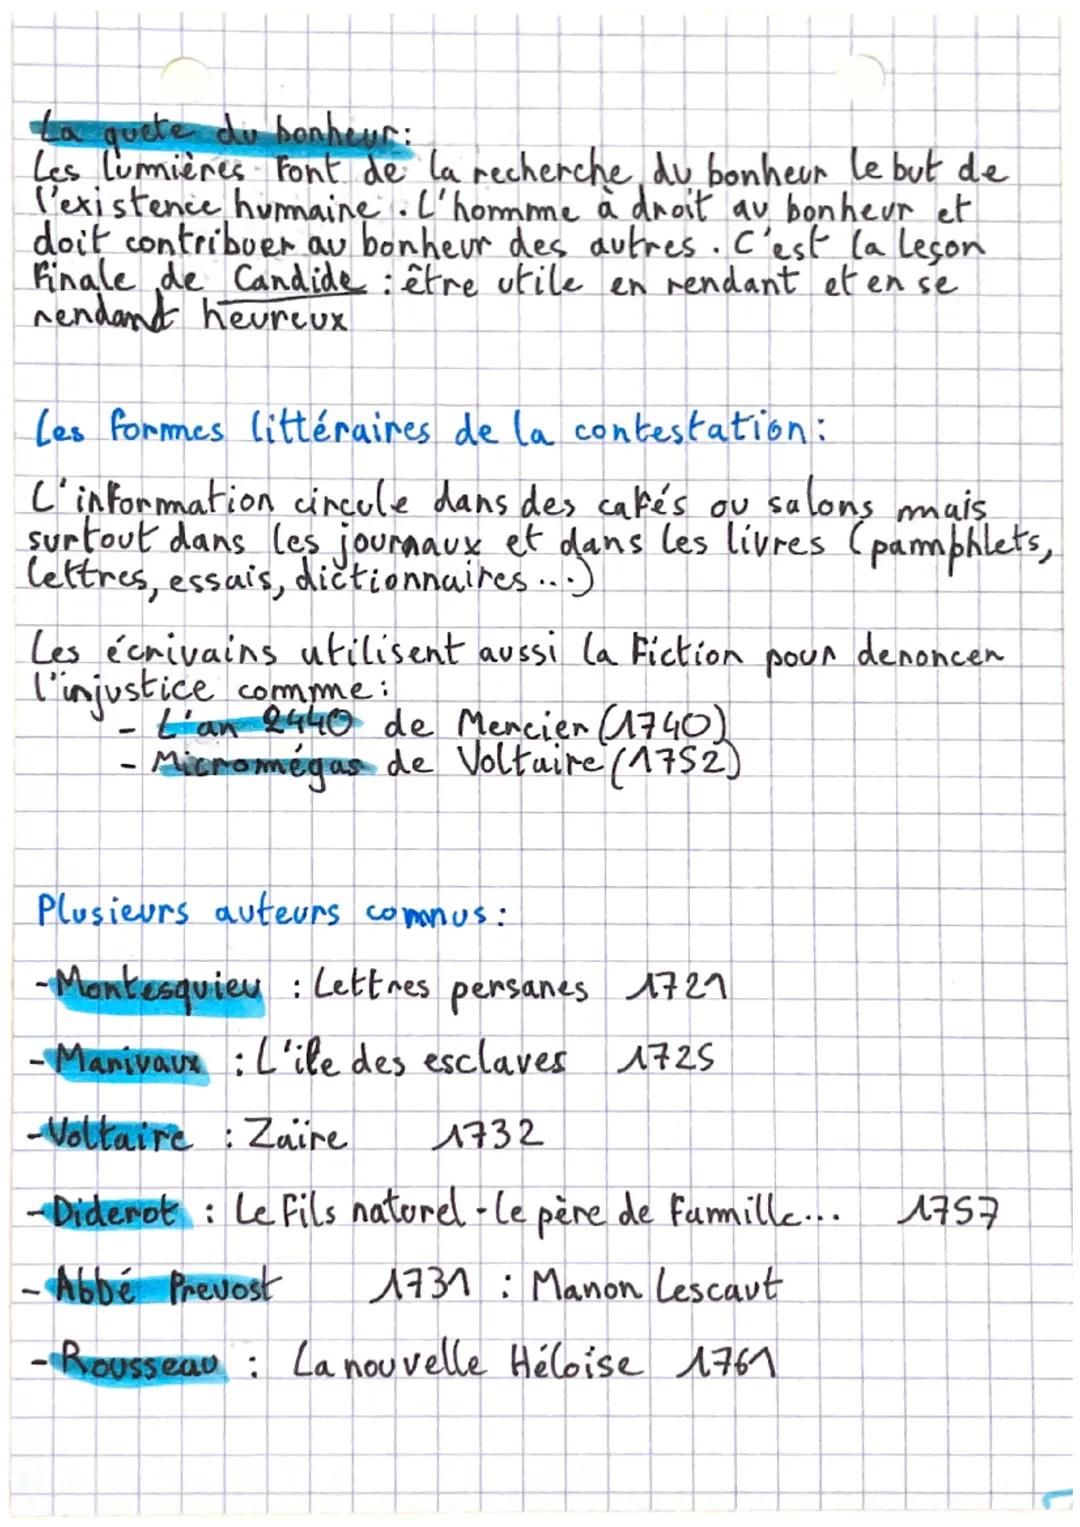 La quete du bonheur:
Les lumières font de la recherche du bonheur le but de
l'existence humaine. L'homme à droit au bonheur et
doit contribuer au bonheur des autres. C'est la leçon
finale de Candide : être utile en rendant et en se
rendant heureux
Les formes littéraires de la contestation:
L'information circule dans des cafés ou salons mais
surtout dans les journaux et dans les livres (pamphlets,
lettres, essais, dictionnaires ...)
Les écrivains utilisent aussi la fiction pour denoncer
l'injustice comme:
- L'an 2440 de Mercier (1740)
- Micromégas de Voltaire (1752)
Plusieurs auteurs connus:
- Montesquieu : Lettres persanes 1721
- Marivaux : L'ile des esclaves 1725
- Voltaire : Zaïre 1732
- Diderot : Le fils naturel - le père de famille... 1757
- Abbé Prevost 1731 : Manon Lescaut
- Rousseau : La nouvelle Héloïse 1761